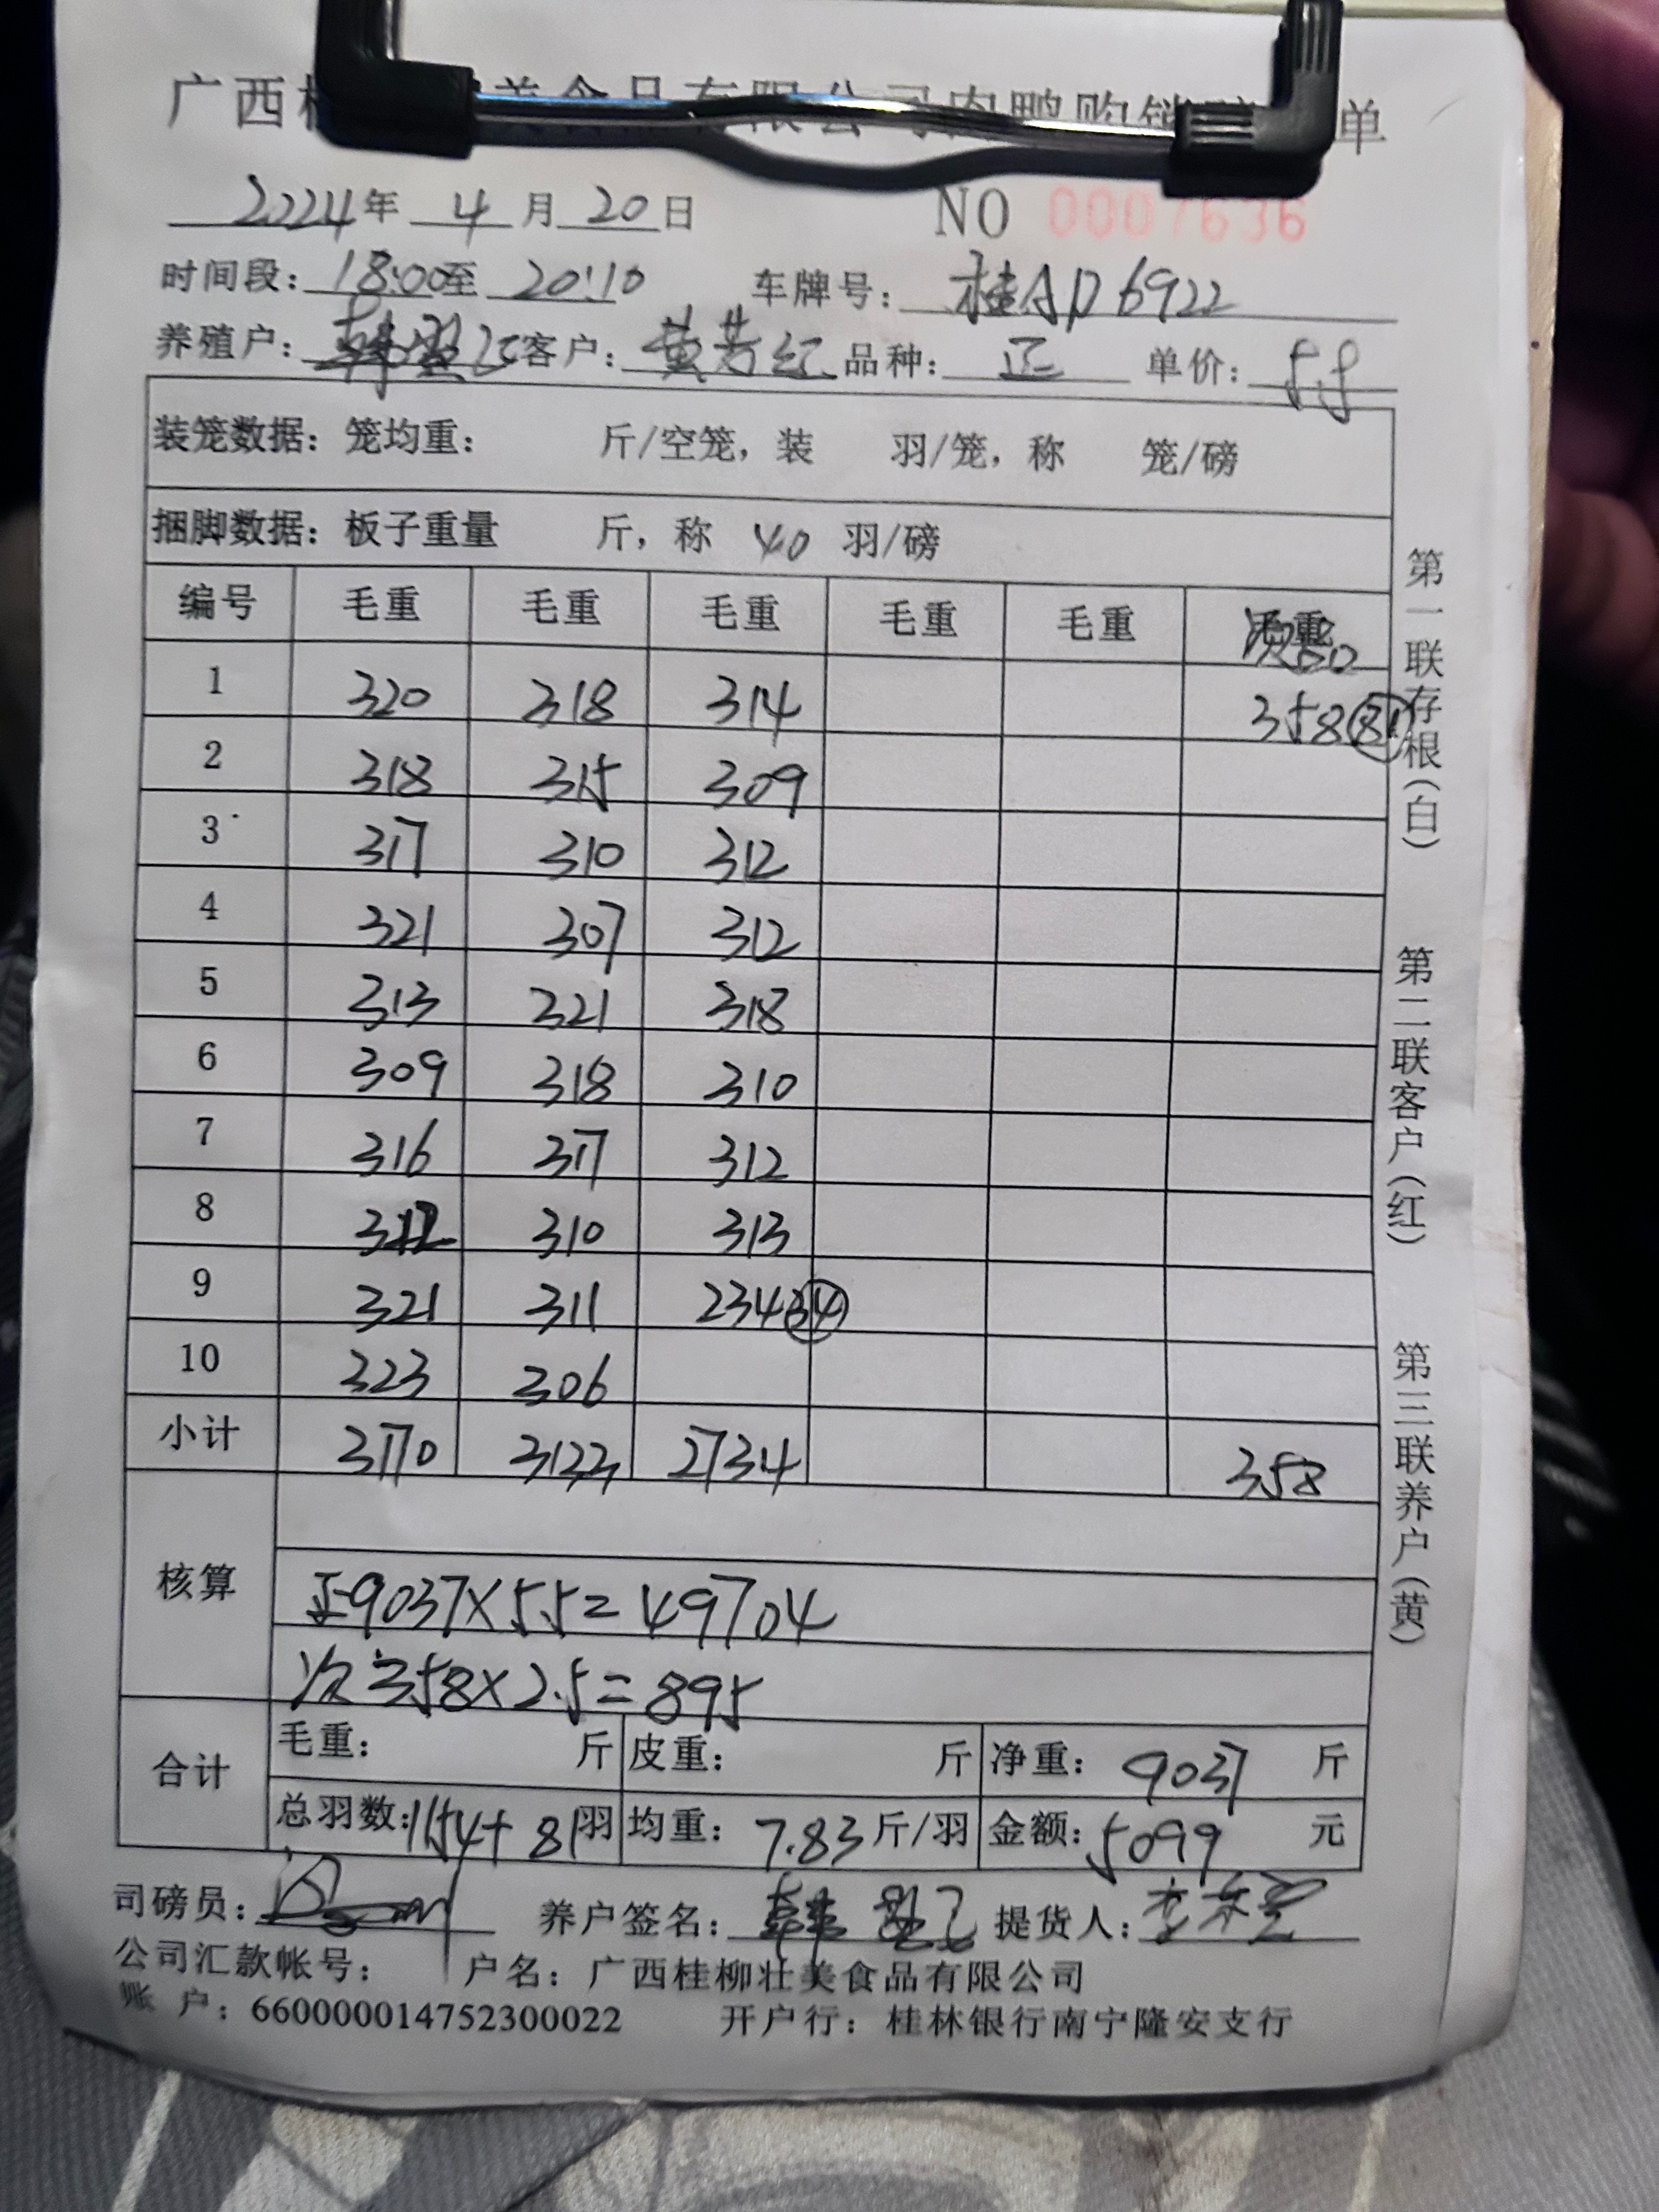 广西 美食品有限公司肉鸭购销 单
2024年 4 月 20 日 NO 0007636
时间段: 18:00至 20:10 车牌号: 桂AD6922
养殖户: 客户: 黄芳红 品种: 正 单价: 5.5
装笼数据: 笼均重: 斤/空笼, 装 羽/笼, 称 笼/磅
捆脚数据: 板子重量 斤, 称 40 羽/磅
编号 毛重 毛重 毛重 毛重 毛重 毛重
1 320 318 314 358 81
2 318 315 309
3 317 310 312
4 321 307 312
5 313 321 318
6 309 318 310
7 316 317 312
8 312 310 313
9 321 311 234 34
10 323 306
小计 3170 3133 2734 358
核算
正9037×5.5=49704
次358×2.5=895
合计 毛重: 斤 皮重: 斤 净重: 9037 斤
总羽数: 1154+81羽 均重: 7.83斤/羽 金额: 5099 元
司磅员: 养户签名: 提货人:
公司汇款帐号: 户名: 广西桂柳壮美食品有限公司
账 户: 660000014752300022 开户行: 桂林银行南宁隆安支行
第一联存根(白) 第二联客户(红) 第三联养户(黄)